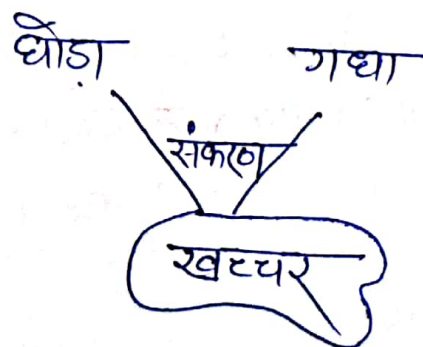 घोड़ा गधा
संकरण
खच्चर